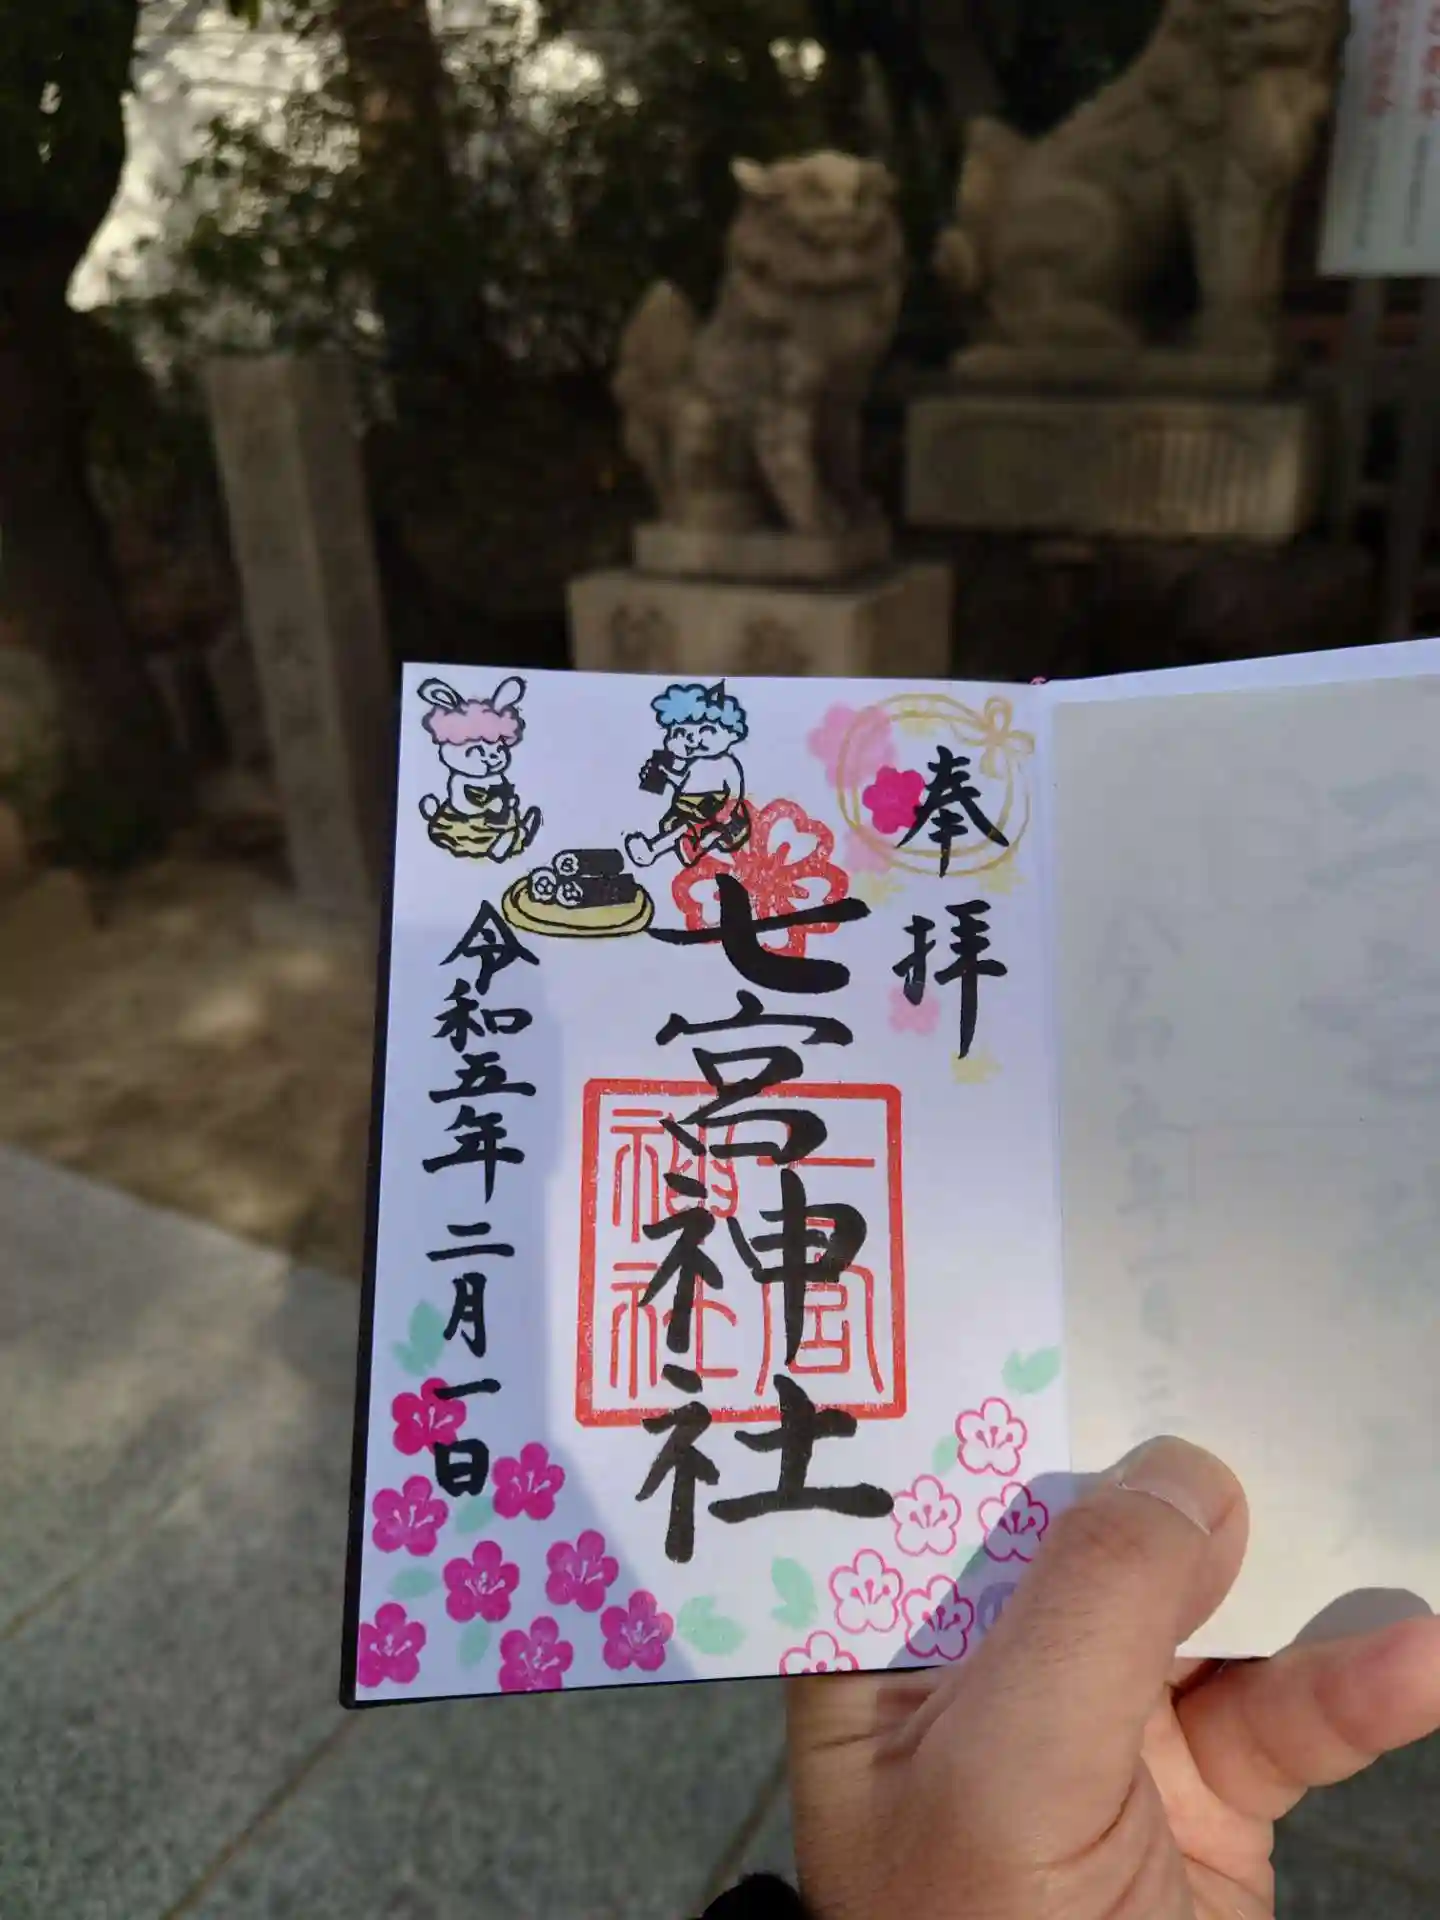 奉拝
七宮神社
七宮
神社
令和五年二月一日